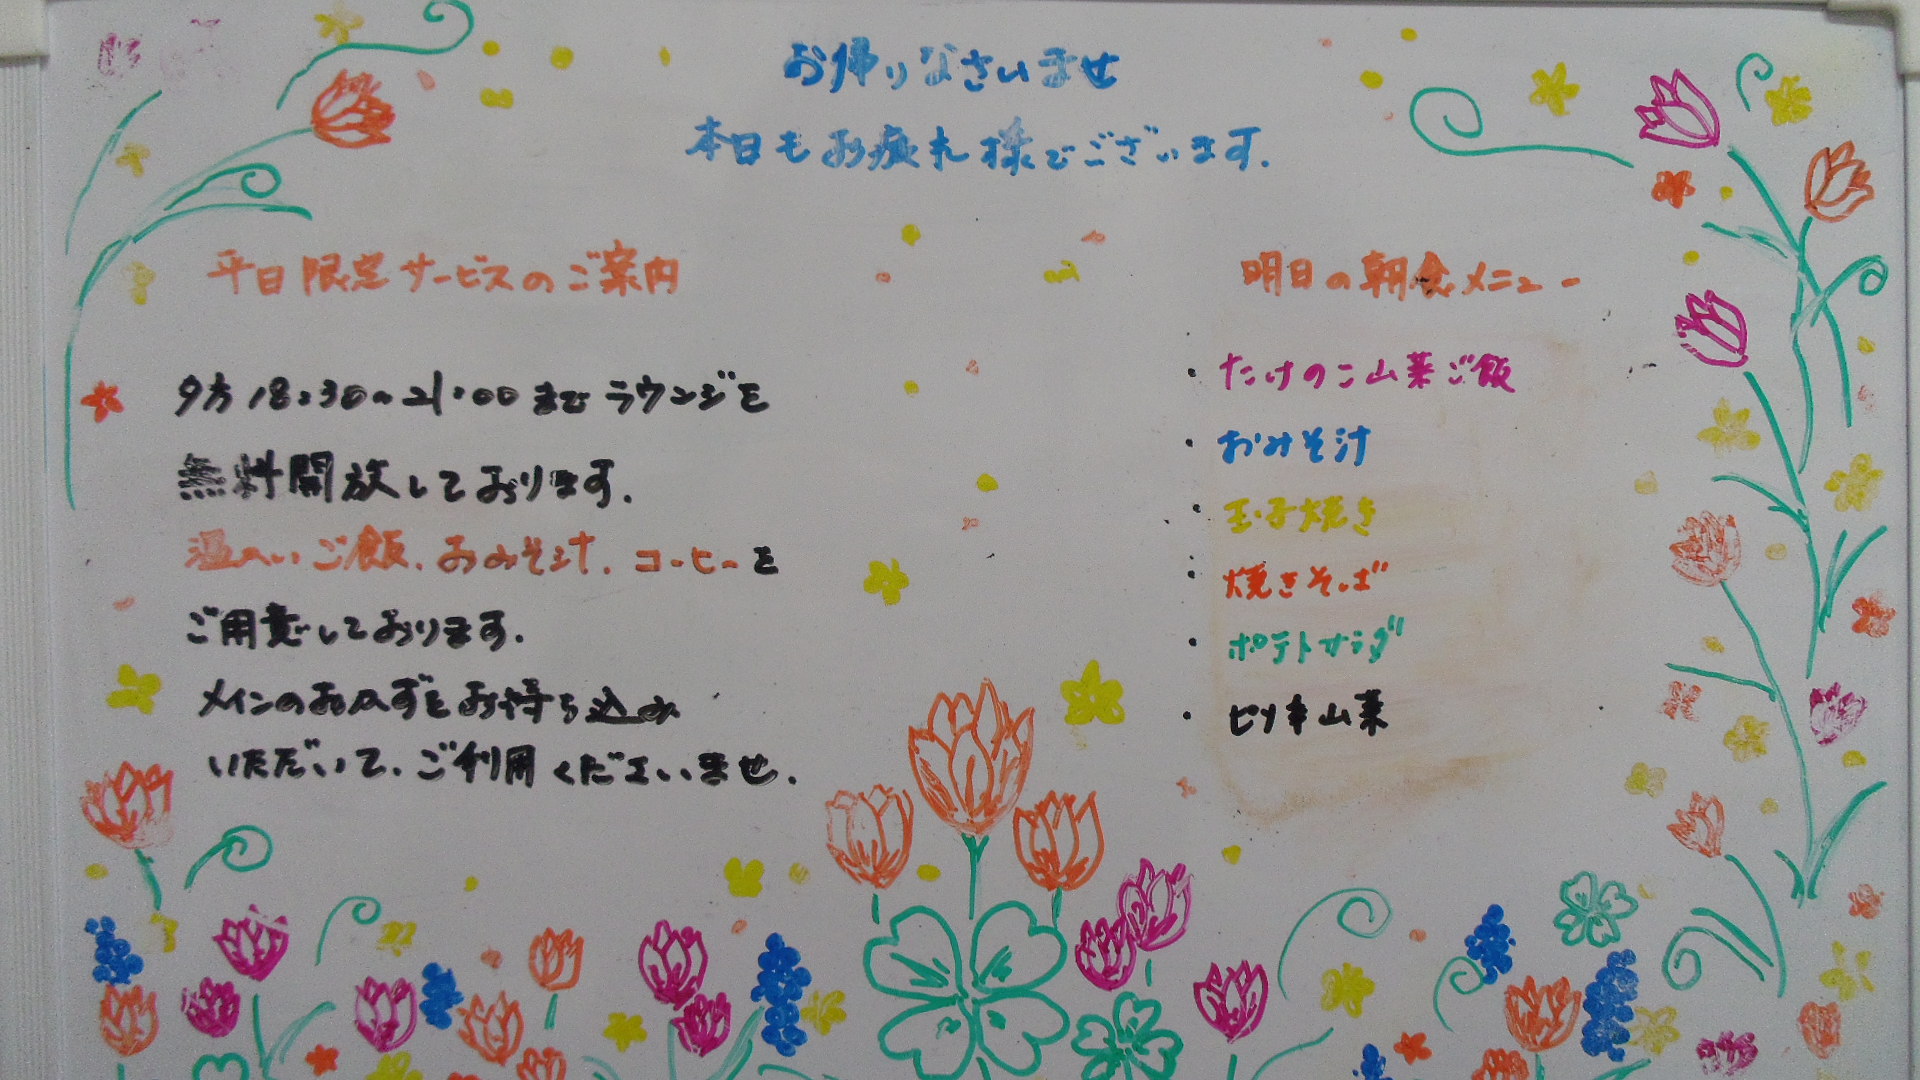 お帰りなさいませ
本日もお疲れ様でございます.
平日限定サービスのご案内
夕方18:30〜21:00までラウンジを
無料開放しております.
温かいご飯.おみそ汁.コーヒーを
ご用意しております.
メインのおかずをお持ち込み
いただいて.ご利用くださいませ.
明日の朝食メニュー
・たけのこ山菜ご飯
・おみそ汁
・玉子焼き
・焼きそば
・ポテトサラダ
・ピリ辛山菜